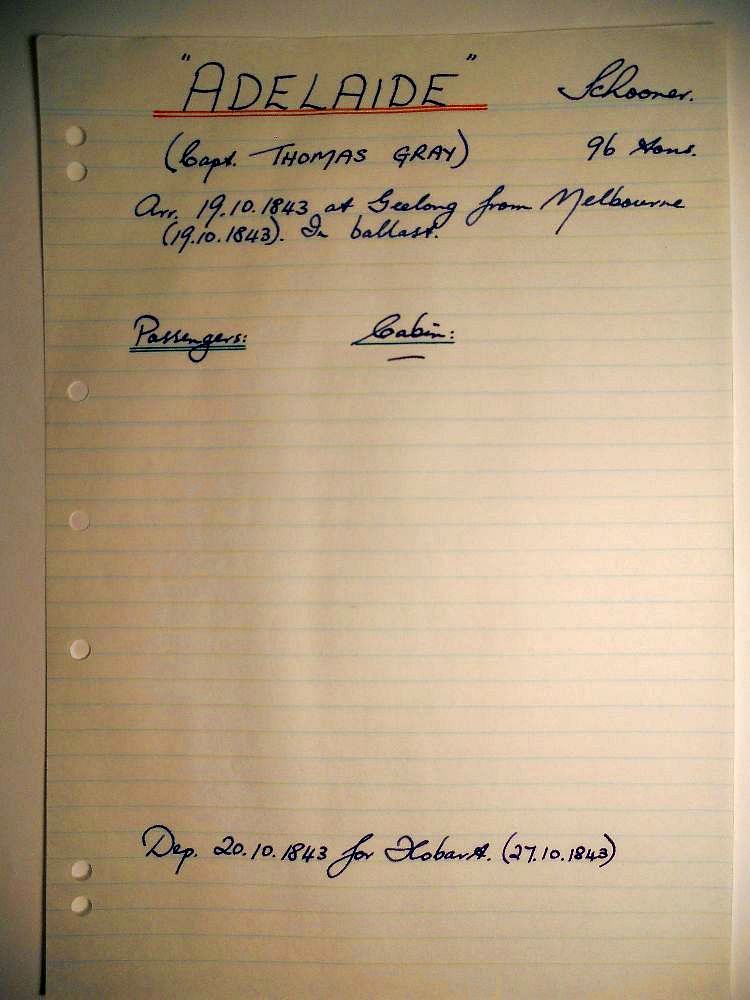 "ADELAIDE" Schooner.
(Capt. THOMAS GRAY) 96 tons.
Arr. 19.10.1843 at Geelong from Melbourne
(19.10.1843). In ballast.
Passengers: Cabin:
—
Dep. 20.10.1843 for Hobart. (27.10.1843)